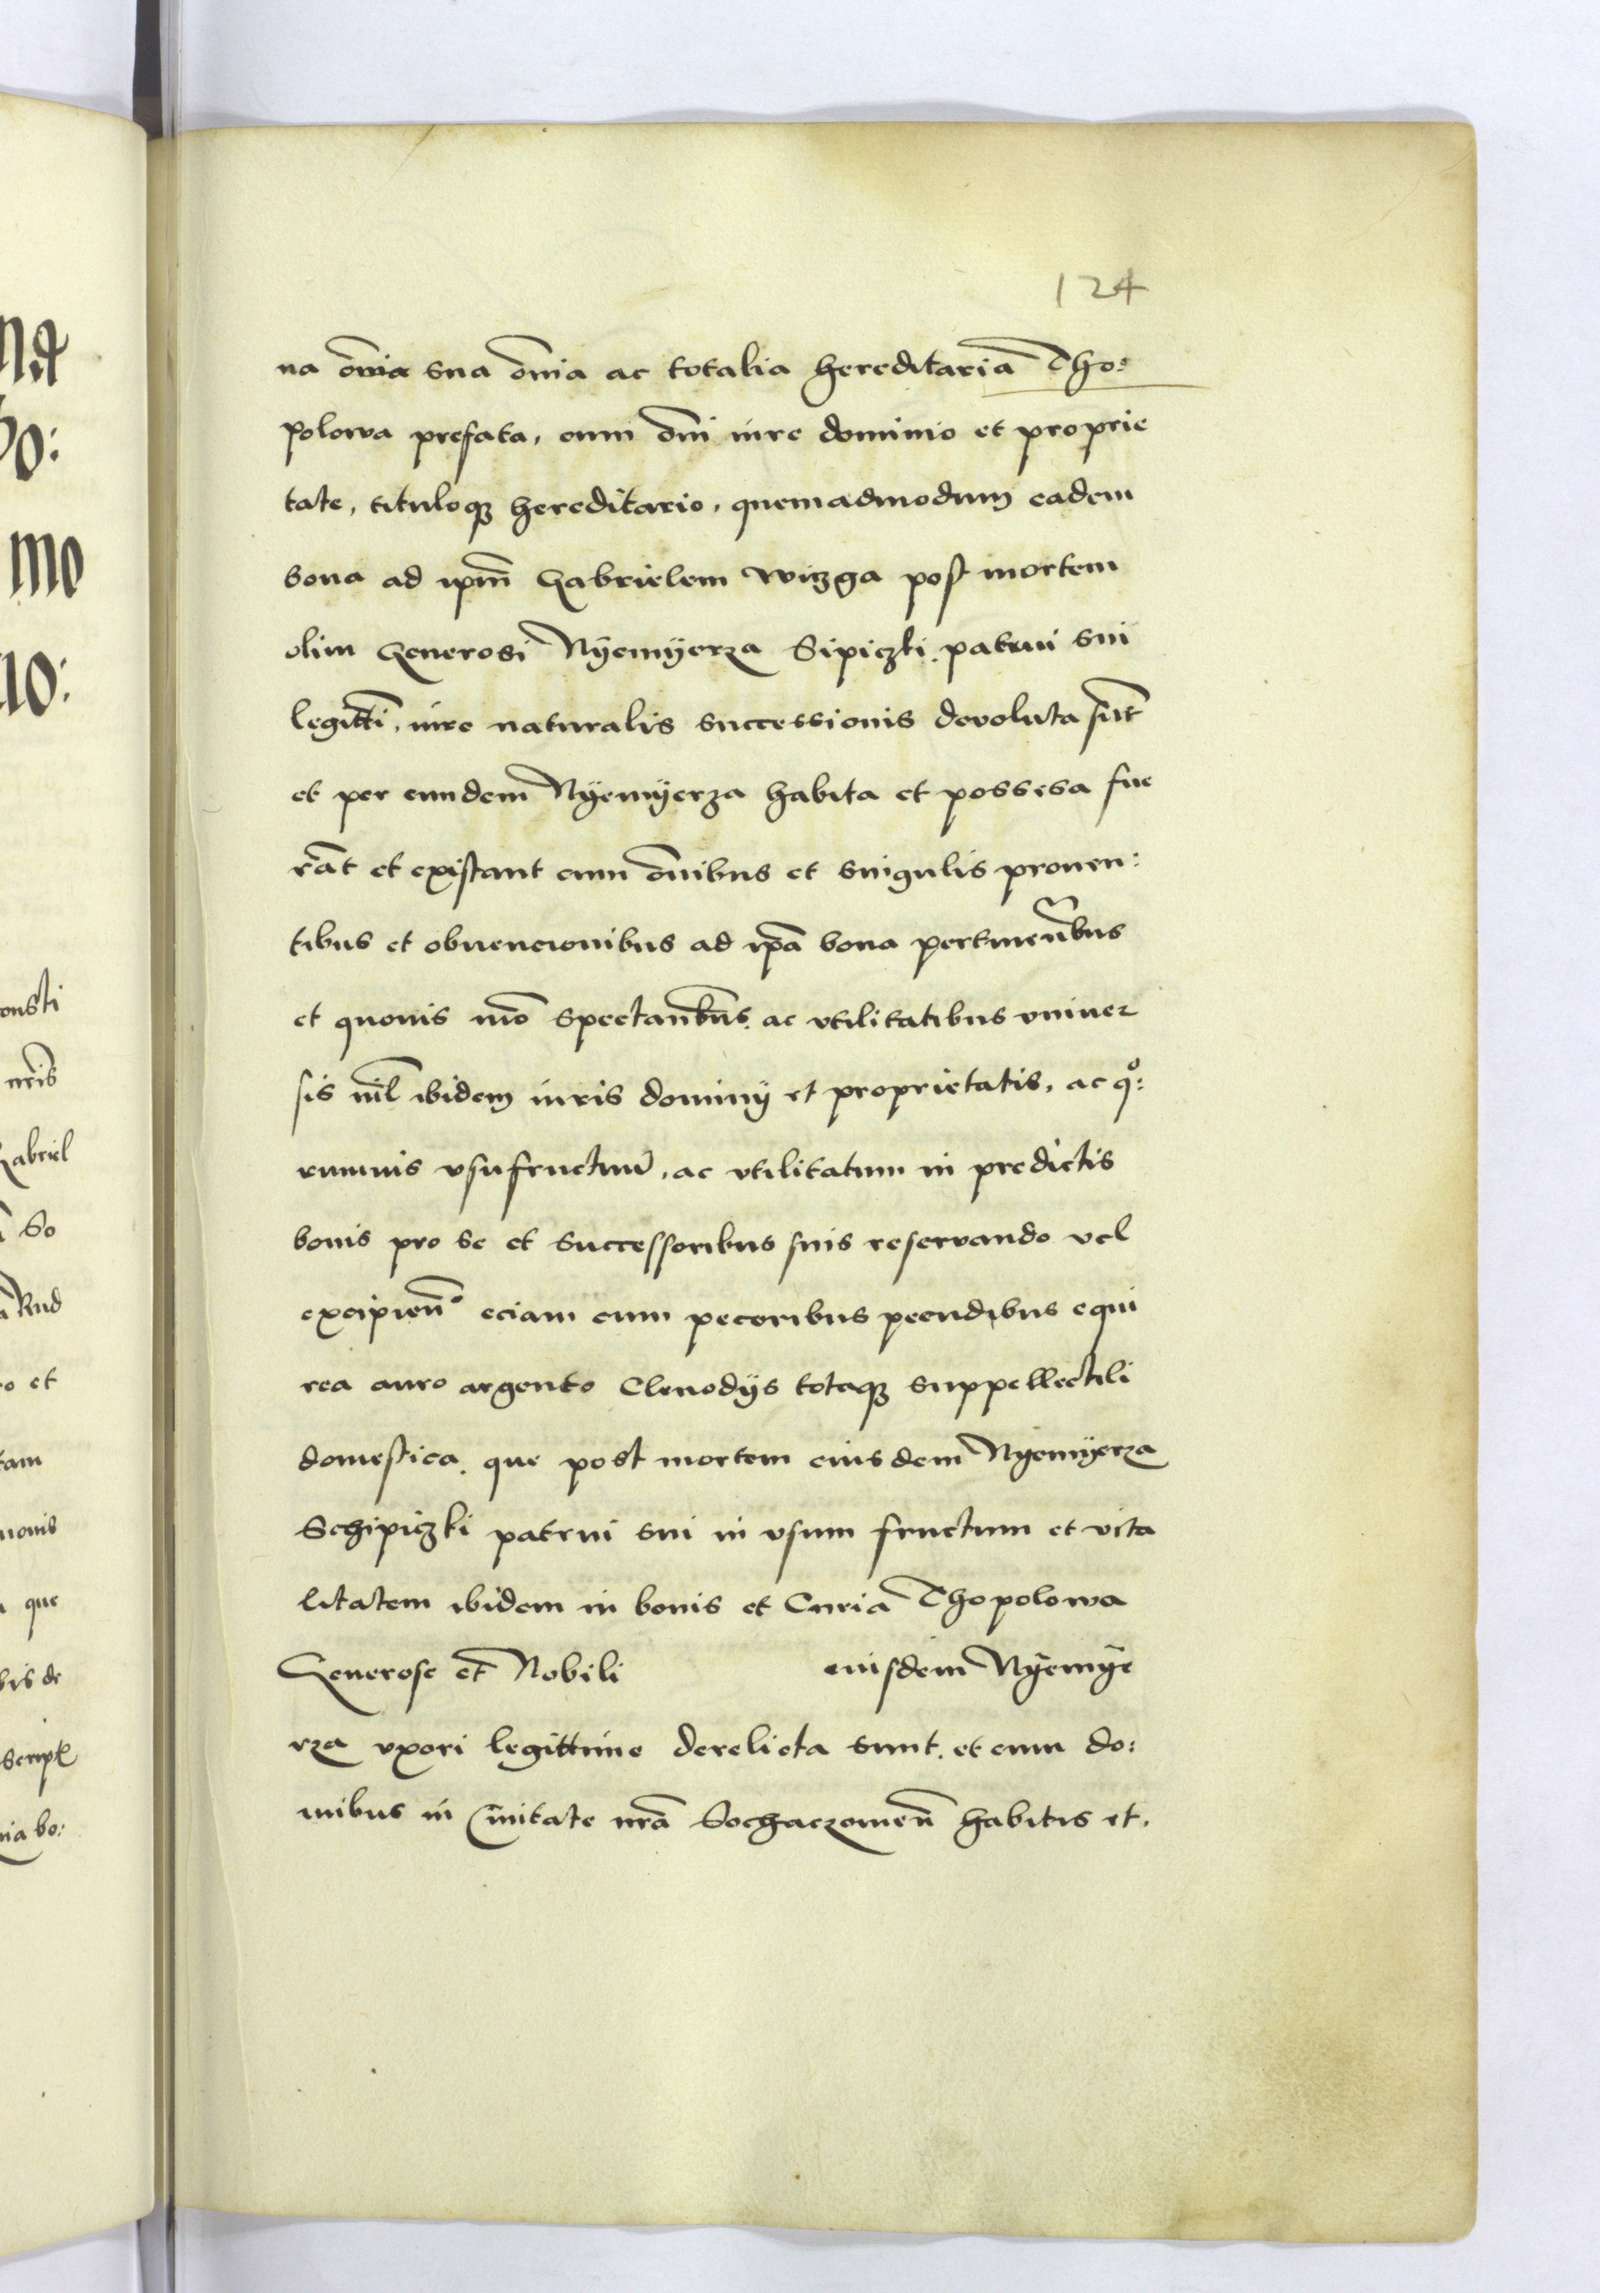 124
na om̅ia sua om̅ia ac totalia hereditaria Tho:
polowa prefata, cum om̅i iure dominio et proprie
tate, tituloqꝫ hereditario, quemadmodum eadem
bona ad ip̅m Gabrielem Wiczga post mortem
olim Generosi Nÿemÿerza Sipiczki patrui sui
legitti̅, iure naturalis successionis devoluta su̅t
et per eundem Nÿemÿerza habita et possesa fue
ra̅t et existant cum om̅ibus et singulis proven:
tibus et obvencionibus ad ip̅a bona pertinen̅bus
et quovis mo̅ spectan̅bus ac vtilitatibus vniver
sis nil̅ ibidem iuris dominÿ et proprietatis, ac qͦ:
rumvis vsufructuu̅, ac vtilitatum in predictis
bonis pro se et successoribus suis reservando vel
excipien̅ᵒ eciam cum pecoribus pecudibus equi
rea auro argento Clenodÿs totaqꝫ suppellectili
domestica que post mortem eiusdem Nÿemÿerza
Schipiczki patrui sui in vsum fructum et vita
litatem ibidem in bonis et Curia Thopolowa
Generose et Nobili eiusdem Nÿemÿe
rza vxori legittime derelicta sunt et cum do:
mibus in Civitate nr̅a Sochaczowien̅ habitis et.